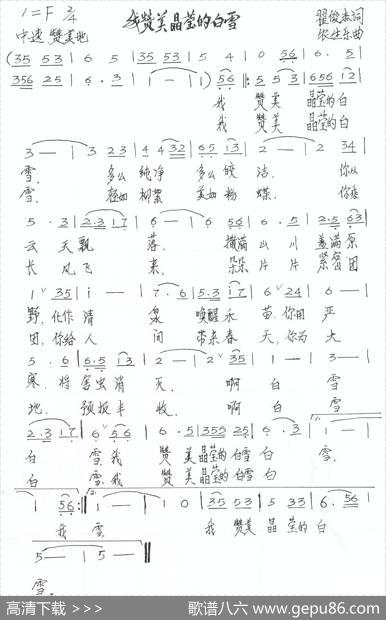 1=F 2/4 我赞美晶莹的白雪 翟俊杰词
中速 赞美地
(35 53 | 6 5 | 35 53 | 5 4 | 0 56 | 6 · 5 |
356 25 | 6 · 3 | 1 — | 1) 56 |: 5 5 3 | 656 12 |
我 赞美 晶莹的白
我 赞美 晶莹的白
3 — | 3 23 | 4 4 32 | 65 13 | 2 — | 2 34 |
雪, 多么 纯净 多么 皎 洁, 你从
雪, 轻如 柳絮 美如 粉 蝶, 你乘
5 · 3 | 2·3 17 | 6 — | 6 56 | 6 · 5 | 2·5 63 |
云 天飘 落, 撒满 山 川 盖满 原
长 风飞 来, 朵朵 片 片 紧紧 团
1 35 | i — | 7 · 6 | 5·3 17 | 6 24 | 6 — |
野, 化作 清 泉 唤醒 永 苗, 你用 严
团, 你给 人 间 带来 春 天, 你为 大
5 · 6 | 6·5 13 | 2 — | 2 35 | 1 — | 3 — |
寒, 将 害虫 消 灭, 啊 白 雪
地, 预报 丰 收, 啊 白 雪
2·3 17 | 6 56 | 6 · 5 | 355 25 | 6 · 3 | 1 — |
白 雪, 我 赞 美 晶莹的 白雪 白 雪.
白 雪, 我 赞 美 晶莹的 白雪 白
1 56 :| 1 — | 1 0 | 35 53 | 5 33 | 6· 56 |
我 雪. 我 赞美 晶莹 的 白
5 — | 5 — ‖
雪.
高清下载 >>> 歌谱八六 www.gepu86.com